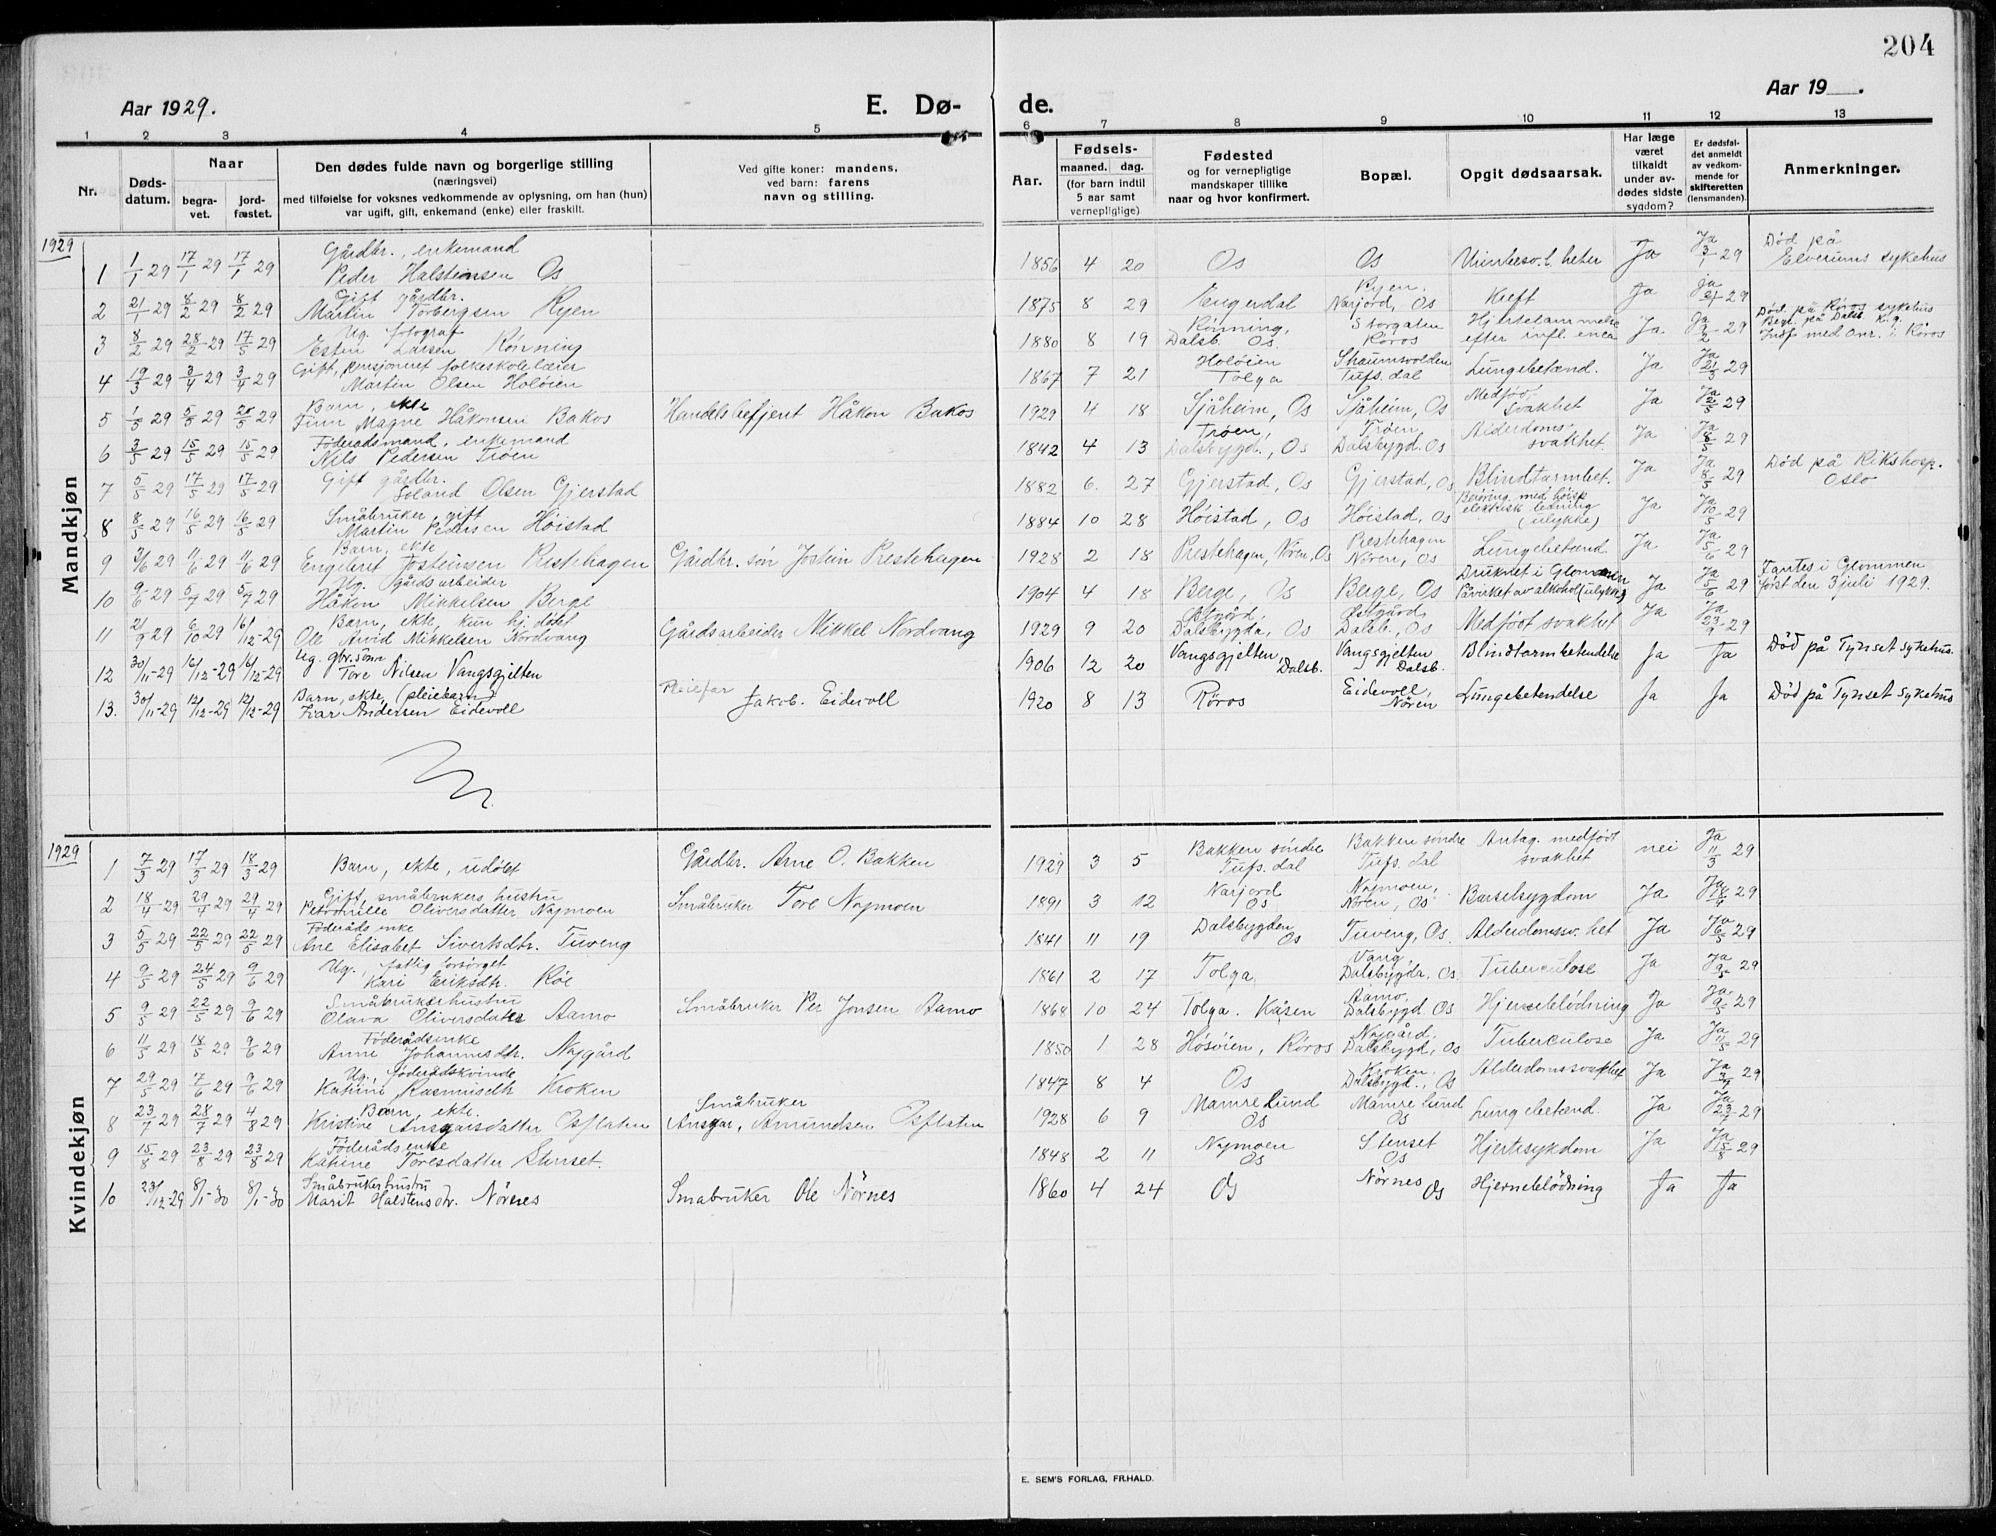 204
Aar 1929.
E. Dø-
de.
Aar 19__.
1 2 3 4 5 6 7 8 9 10 11 12 13
Nr.
Døds-
datum.
Naar
begra-
vet.
jord-
fæstet.
Den dødes fulde navn og borgerlige stilling
(næringsvei)
med tilføielse for voksnes vedkommende av oplysning, om han (hun)
var ugift, gift, enkemand (enke) eller fraskilt.
Ved gifte koner: mandens,
ved barn: farens
navn og stilling.
Aar.
Fødsels-
maaned. dag.
(for barn indtil
5 aar samt
vernepligtige)
Fødested
og for vernepligtige
mandskaper tillike
naar og hvor konfirmert.
Bopæl.
Opgit dødsaarsak.
Har læge
været
tilkaldt
under av-
dødes sidste
sygdom?
Er dødsfal-
det anmeldt
av vedkom-
mende for
skifteretten
(lensmanden).
Anmerkninger.
Mandkjøn
1929
Gårdbr., enkemand Ja Død på
1 1/1 29 17/1 29 17/1 29 Peder Halstensen Os 1856 4 20 Os Os Ja 3/1 29 Elverums sykehus
Gift gårdbr. Ryen. ja
2 21/1 29 8/2 29 8/2 29 Martin Torbergsen Ryen 1875 8 29 Engerdal Narjord, Os Kreft Ja 29
Ug. fotograf Rönning, Storgaten Hjertelammelse Ja Død på Røros sykehus
3 8/2 29 28/2 29 17/5 29 Esten Larsen Rönning 1880 8 19 Dalsb. Os. Röros efter infl. Ja 2 29 i Röros
Gift, pensjonert folkeskolelærer Holöien Ja
4 19/3 29 3/4 29 3/4 29 Martin Olsen Holöien 1867 7 21 Tolga Tufs. dal Lungebetænd. Ja 29
Barn, ekte Medfød. Ja
5 1/5 29 5/5 29 20/5 29 Finn Magne Håkonsen Bakos Handelsbetjent Håkon Bakos 1929 4 18 Sjåheim, Os Sjåheim, Os svakhet Ja 2/5 29
Föderådsmand, enkemand Tröen, Tröen Alderdoms- Ja
6 3/5 29 15/5 29 15/5 29 Nils Pedersen Tröen 1842 4 13 Dalsbygd., Os Dalsbygd. Os svakhet. Ja 8/5 29
Gift gårdbr. Ja Død på Rikshosp.
7 5/5 29 17/5 29 17/5 29 Olsen Gjerstad 1882 6 27 Gjerstad, Os Gjerstad, Os Blindtarmbet. Ja 8/5 29 Oslo
Småbruker, gift Beröring med höisp. elektrisk ledning Ja
8 8/5 29 16/5 29 16/5 29 Martin Pedersen Höistad 1884 10 28 Höistad, Os Höistad, Os (ulykke) Ja 10/5 29
Barn, ekte Prestehagen Ja
9 29 11/6 29 11/6 29 Engebret Josteinsen Prestehagen Gårdbr. sön Jostein Prestehagen 1928 2 18 Prestehagen, Nören, Os Nören, Os Lungebetænd. Ja 5/6 29
Ug. gårdsarbeider Druknet i Glommen Ja Fantes i Glommen
10 9/6 29 5/7 29 5/7 29 Håkon Mikkelsen Berge 1904 4 18 Berge, Os Berge, Os Påvirket av alkohol (ulykke) Ja 29 først den 3 juli 1929.
Barn, ekte, kun hj. döbt Østgård Østgård Ja
11 21/9 29 6/10 29 16/12-29 Ole Arvid Mikkelsen Nordvang Gårdsarbeider Mikkel Nordvang 1929 9 20 Dalsbygda, Os Dalsb., Os Medfödt svakhet Ja 23/9 29
Ug. gbr. sönn Vangsgjelten Vangsgjelten
12 30/11-29 16/12-29 16/12-29 Tore Nilsen Vangsgjelten 1906 12 20 Dalsb. Dalsb. Blindtarmbetendelse Ja Ja Död på Tynset sykehus.
Barn, ekte, (pleiebarn) Pleiefar Eidevoll,
13. 30/11-29 12/12-29 12/12-29 Ivar Andersen Eidevoll Jakob. Eidevoll 1920 8 13 Röros Nören Lungebetendelse Ja Ja Död på Tynset sykehus
Kvindekjøn
1929
Bakken söndre Bakken söndre Antag. medfödt Ja
1 7/3 29 17/3 29 18/3 29 Barn, ekte, udöbt Gårdbr. Arne O. Bakken 1929 3 5 Tufs. dal Tufs. dal svakhet nei 11/3 29
Gift, småbrukers hustru Narjord Nymoen, Ja
2 18/4 29 29/4 29 29/4 29 Petronille Oliversdatter Nymoen Småbruker Tore Nymoen 1891 3 12 Os Nören, Os Barselsygdom Ja 18/4 29
Föderåds enke Dalsbygden Ja
3 5/5 29 22/5 29 22/5 29 Ane Elisabet Sivertsdtr. Tuveng 1841 11 19 Os Tuveng, Os. Alderdomssv. het Ja 6/5 29
Ug. fattig forsörget Vang, Ja
4 9/5 29 24/5 29 9/6 29 Kari Eriksdtr. Röe 1861 2 17 Tolga Dalsbygda, Os. Tuberculose Ja 9/5 29
Småbrukerhustru Aamo, Ja
5 9/5 29 22/5 29 9/6 29 Olava Oliversdatter Aamo Småbruker Per Jonsen Aamo 1864 10 24 Tolga. Kåsen Dalsbygd. Os Hjerneblödning Ja 9/5 29
Föderådsenke Nygård. Ja
6 11/5 29 18/5 29 9/6 29 Anne Johannesdtr. Nygård 1850 1 28 Hösöien, Röros Dalsbygd, Os Tuberculose Ja 11/5 29
Ug. föderådskvinde Kroken, Ja
7 29/5 29 7/6 29 9/6 29 Katrine Rasmusdtr Kroken 1847 8 4 Os Dalsbygd., Os Alderdomssvakhet Ja 29
Barn, ekte. Småbruker Mamrelund Mamrelund Ja
8 23/7 29 28/7 29 4/8 29 Kristine Ansgarsdatter Osflaten Ansgar, Amundsen Osflaten 1928 6 9 Os Os Lungebetænd. Ja 23/7 29
Föderåds enke Nymoen Stenset Ja
9 15/8 29 23/8 29 23/8 29 Katrine Toresdatter Stenset. 1848 2 11 Os Os Hjertesykdom Ja 15/8 29
Småbrukerhustru
10 23/12-29 8/1-30 8/1-30 Marit Halstensdtr. Nörnes Småbruker Ole Nörnes 1860 4 24 Os Nörnes Os Hjerneblödning Ja Ja
E. SEM'S FORLAG, FR.HALD.